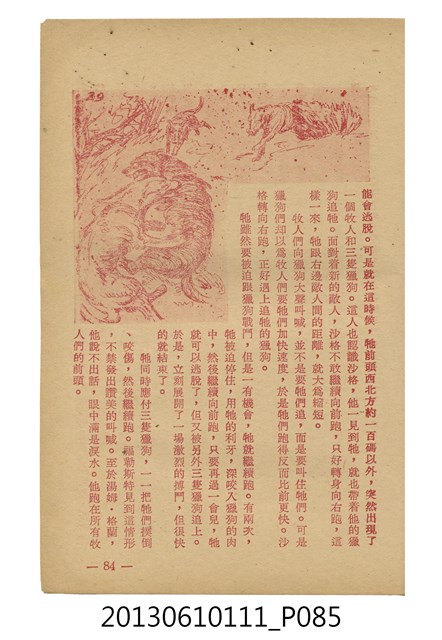 能會逃脫。可是就在這時候，牠前頭西北方約一百碼以外，突然出現了
一個牧人和三隻獵狗。這人也認識沙格，他一見到牠，就也帶着他的獵
狗追牠。面對着新的敵人，沙格不敢繼續向前跑，只好轉身向右跑，這
樣一來，牠跟右邊敵人間的距離，就大爲縮短。
牧人們向獵狗大聲叫喊，並不是要牠們追，而是要叫住牠們。可是
獵狗們却以爲牧人們要牠們加快速度，於是牠們跑得反而比前更快。沙
格轉向右跑，正好遇上追牠的獵狗。
牠雖然要被迫跟獵狗戰鬥，但是一有機會，牠就繼續跑。有兩次，
牠被迫停住，用牠的利牙，深咬入獵狗的肉
中，然後繼續向前跑，只要再過一會兒，牠
就可以逃脫了，但又被另外三隻獵狗追上。
於是，立刻展開了一場激烈的搏鬥，但很快
的就結束了。
牠同時應付三隻獵狗，一一把牠們撲倒
、咬傷，然後繼續跑。福勒斯特見到這情形
，不禁發出讚美的叫喊。至於湯姆·格蘭，
他說不出話，眼中滿是淚水。他跑在所有牧
人們的前頭。
39
— 84 —
20130610111_P085